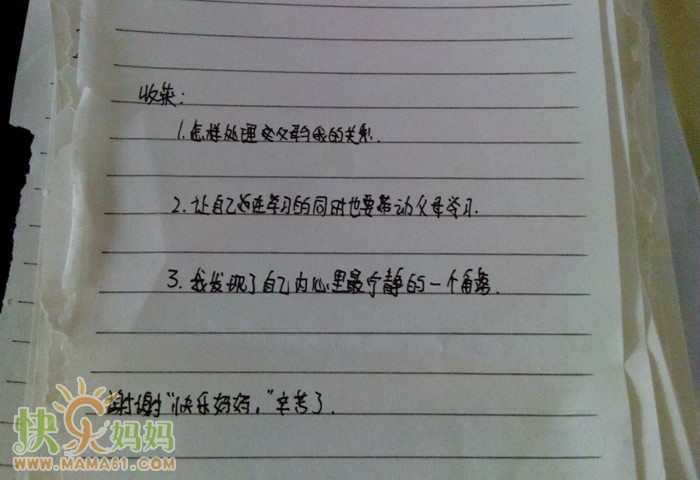 收集:
1.怎样处理变父母与我的关系.
2.让自己边学习的同时也要带动父母学习.
3.我发现了自己内心里最宁静的一个角落.
谢谢"快乐妈妈,"辛苦了.
快乐妈妈
WWW.MAMA61.COM